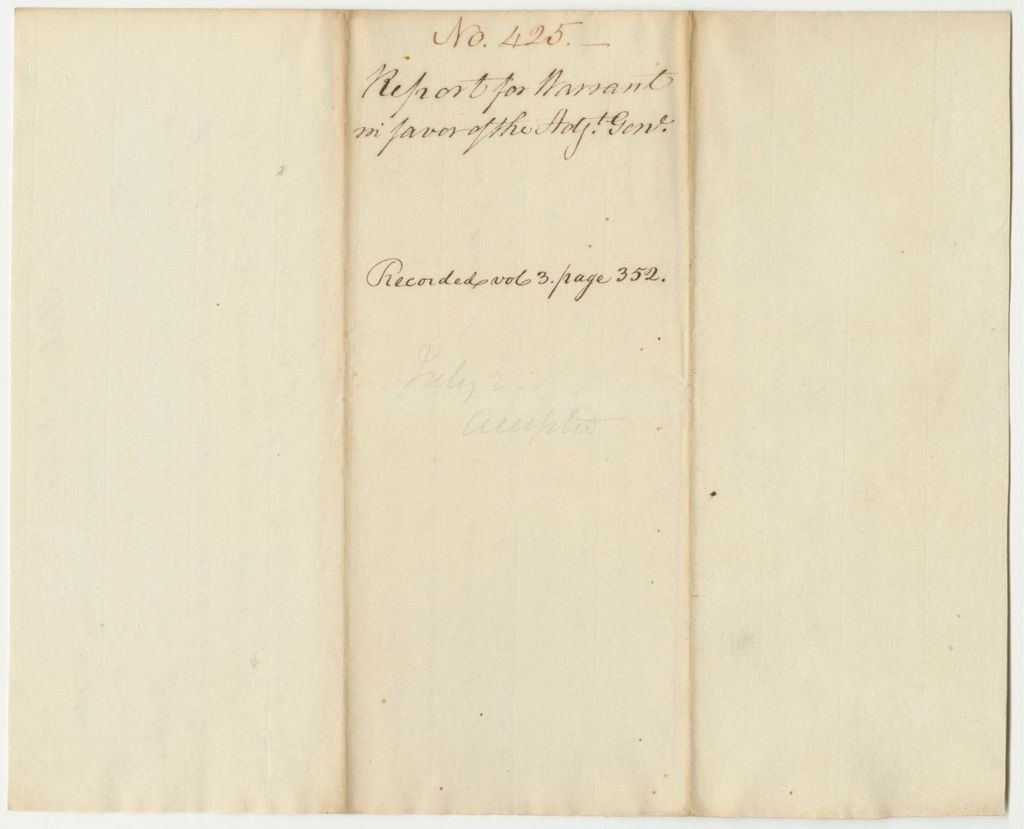 No. 425.
Report for Warrant
in favor of the Adjt. Genl.
Recorded vol 3. page 352.
July 2
accepted